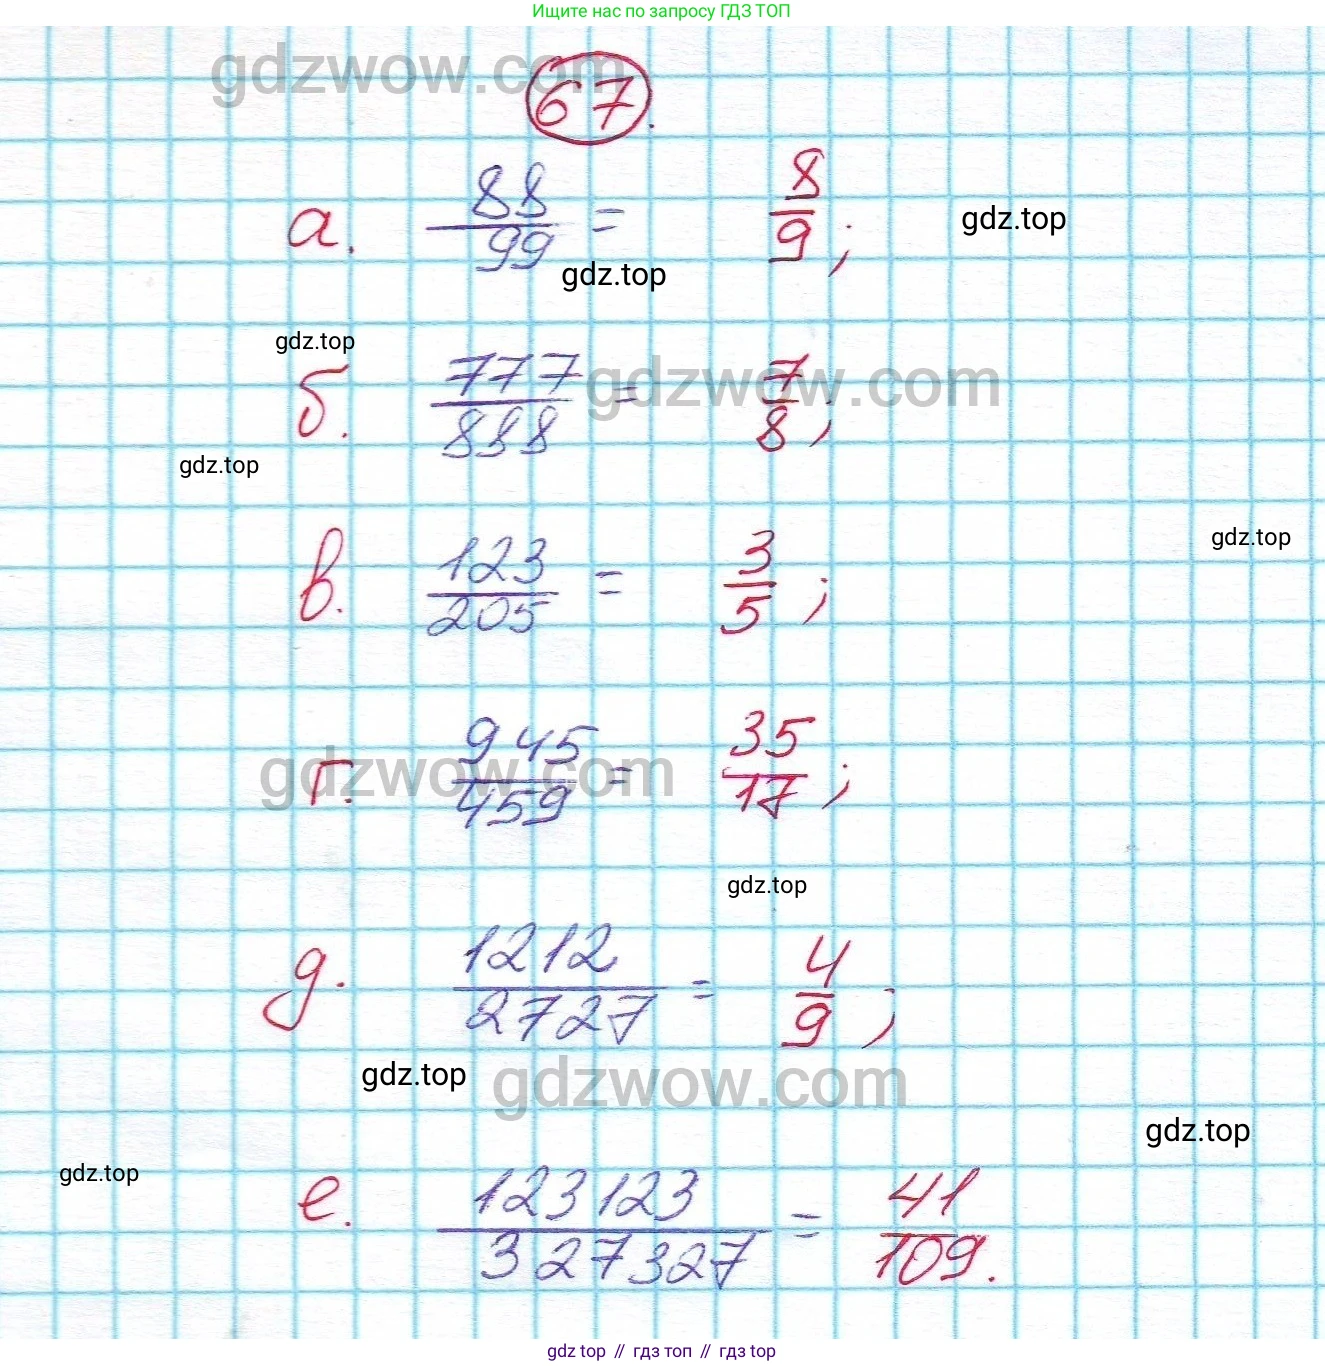 Ищите нас по запросу ГДЗ ТОП
gdzwow.com
67.
а. 88/99 = 8/9;
gdz.top
gdz.top
gdz.top
б. 777/888 = 7/8;
gdzwow.com
gdz.top
gdz.top
в. 123/205 = 3/5;
г. 945/459 = 35/17;
gdzwow.com
gdz.top
д. 1212/2727 = 4/9;
gdz.top
gdzwow.com
gdz.top
gdz.top
е. 123123/327327 = 41/109.
gdz top // гдз топ // гдз top